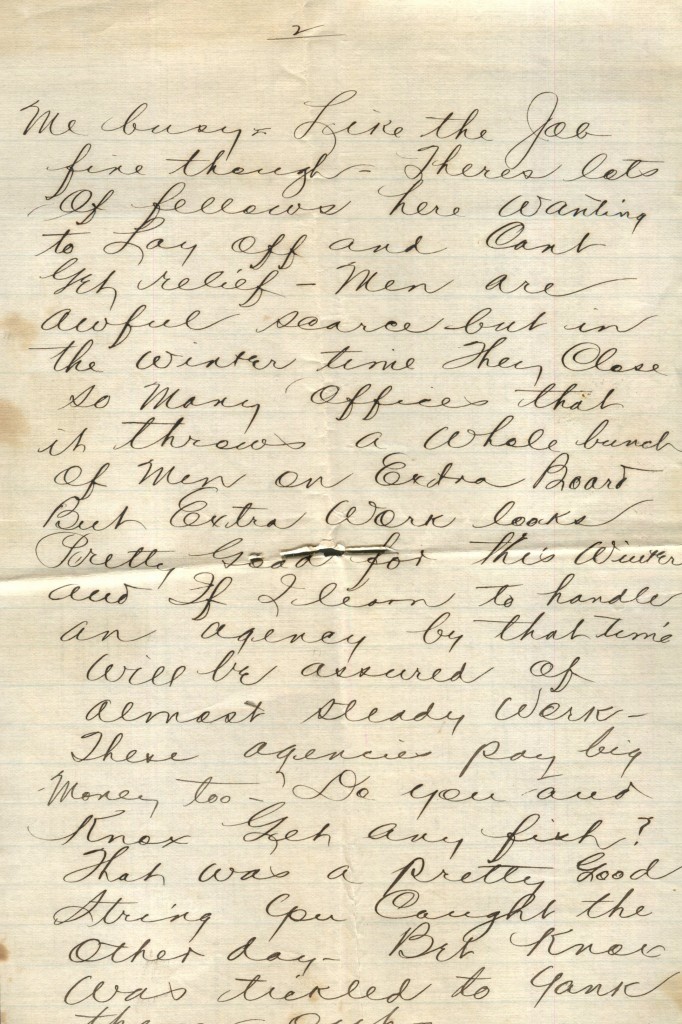 2
Me busy - Like the Job
fine though - Theres lots
Of fellows here Wanting
to Lay Off and Cant
Get relief - Men are
awful scarce but in
the winter time They Close
so Many Offices that
it throws a Whole bunch
Of Men on Extra Board
But Extra Work looks
Pretty Good for this Winter
and If I learn to handle
an agency by that time
Will be assured of
almost steady Work -
These agencies pay big
Money too - Do you and
Knox Get any fish?
That was a pretty Good
String you Caught the
Other day - Bet Knox
Was tickled to Yank